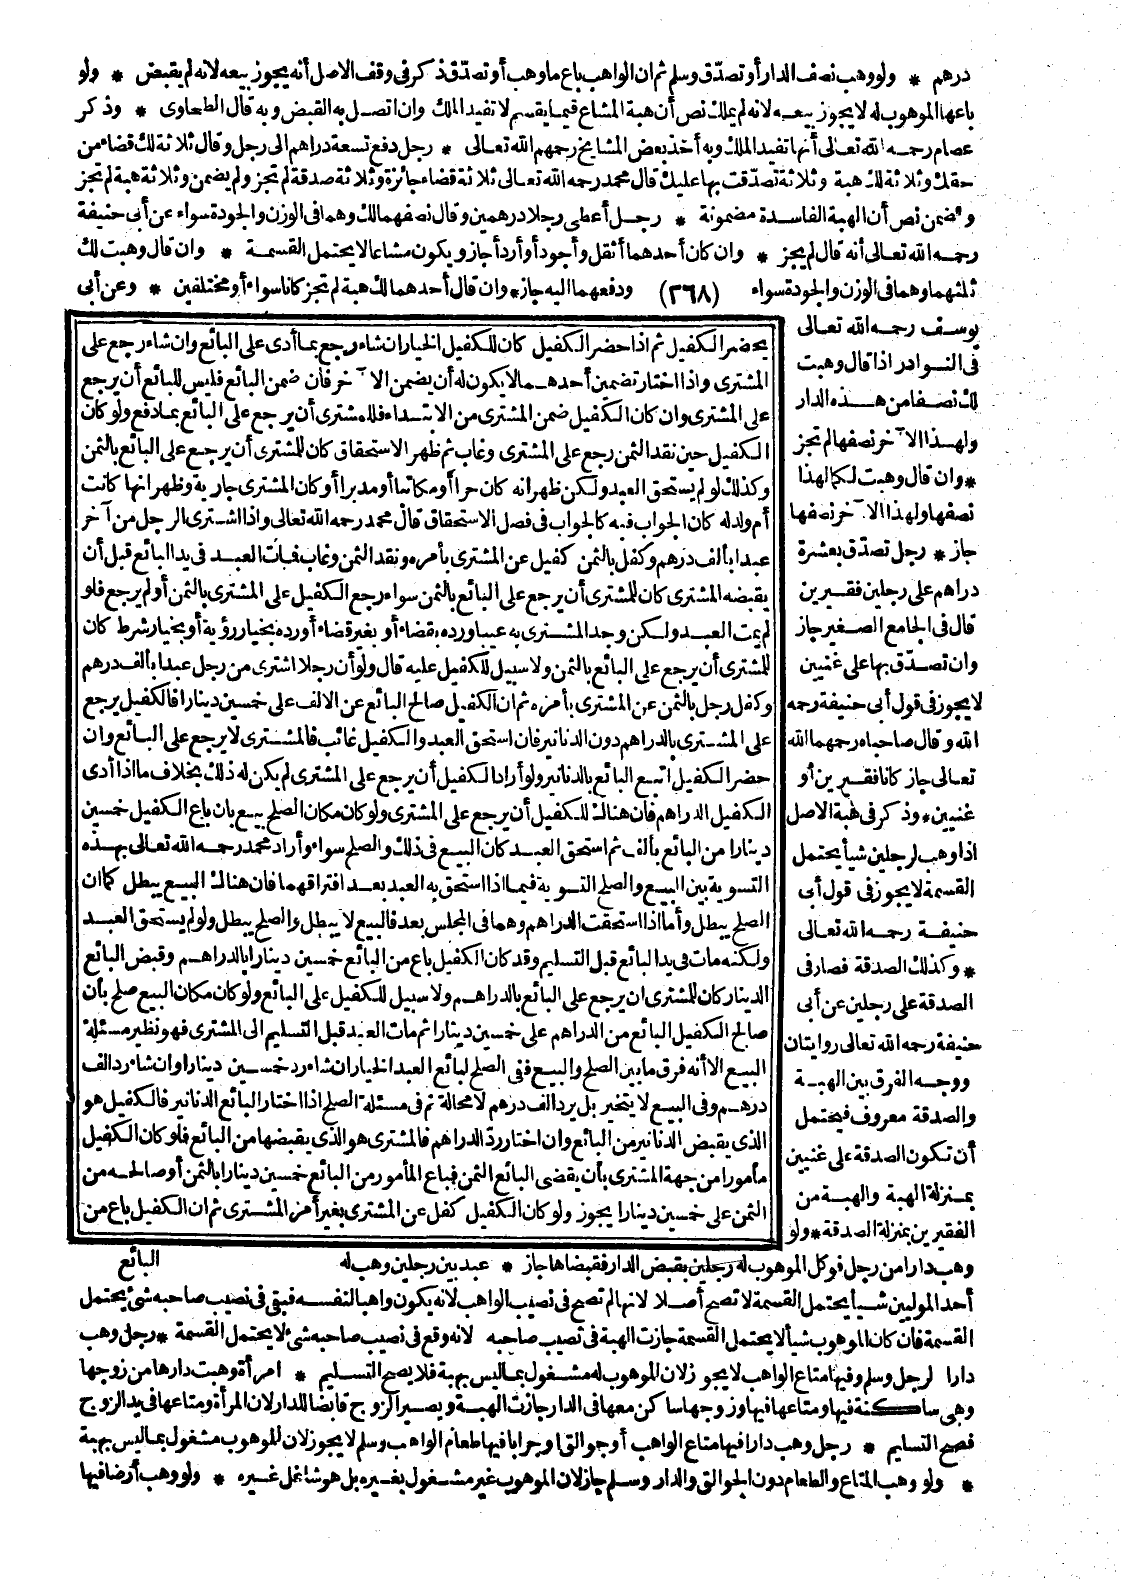 درهم * ولو وهب نصف الدار أو تصدّق وسلم ثم ان الواهب باع ما وهب أو تصدّق ذكر فى وقف الاصل أنه يجوز بيعه لانه لم يقبض * ولو
باعها الموهوب له لا يجوز بيعه لانه لم يملك نص أن هبة المشاع فيما يقسم لا تفيد الملك وان اتصل به القبض وبه قال الطحاوى * وذكر
عصام رحمه الله تعالى أنها تفيد الملك وبه أخذ بعض المشايخ رحمهم الله تعالى * رجل دفع تسعة دراهم الى رجل وقال ثلاثة لك قضاء من
حقك وثلاثة لك هبة وثلاثة تصدّقت بها عليك قال محمد رحمه الله تعالى ثلاثة قضاء جائزة وثلاثة صدقة لم تجز ولم يضمن وثلاثة هبة لم تجز
ويضمن نص أن الهبة الفاسدة مضمونة * رجل أعطى رجلا درهمين وقال نصفهما لك وهما فى الوزن والجودة سواء عن أبى حنيفة
رحمه الله تعالى أنه قال لم يجز * وان كان أحدهما أثقل وأجود أو أردأ جاز ويكون مشاعا لا يحتمل القسمة * وان قال وهبت لك
ثلثهما وهما فى الوزن والجودة سواء (٣٦٨) ودفعهما اليه جاز * وان قال أحدهما لك هبة لم تجز كانا سواء أو مختلفين * وعن أبى
يوسف رحمه الله تعالى
فى النوادر اذا قال وهبت
لك نصفا من هذه الدار
ولهذا الآخر نصفها لم تجز
* وان قال وهبت لكما لهذا
نصفها ولهذا الآخر نصفها
جاز * رجل تصدّق بعشرة
دراهم على رجلين فقيرين
قال فى الجامع الصغير جاز
وان تصدق بها على غنيين
لا يجوز فى قول أبى حنيفة رحمه
الله وقال صاحباه رحمهما الله
تعالى جاز كانا فقيرين أو
غنيين * وذكر فى هبة الاصل
اذا وهب لرجلين شيأ يحتمل
القسمة لا يجوز فى قول أبى
حنيفة رحمه الله تعالى
* وكذلك الصدقة فصار فى
الصدقة على رجلين عن أبى
حنيفة رحمه الله تعالى روايتان
ووجه الفرق بين الهبة
والصدقة معروف فيحتمل
أن تكون الصدقة على غنيين
بمنزلة الهبة والهبة من
الفقيرين بمنزلة الصدقة * ولو
يحضر الكفيل ثم اذا حضر الكفيل كان للكفيل الخيار ان شاء رجع بما أدى على البائع وان شاء رجع على
المشترى واذا اختار تضمين أحدهما لا يكون له أن يضمن الآخر فان ضمن البائع فليس للبائع أن يرجع
على المشترى وان كان الكفيل ضمن المشترى من الابتداء فللمشترى أن يرجع على البائع بما دفع ولو كان
الكفيل حين نقد الثمن رجع على المشترى وغاب ثم ظهر الاستحقاق كان للمشترى أن يرجع على البائع بالثمن
وكذلك لو لم يستحق العبد ولكن ظهر انه كان حرا أو مكاتبا أو مدبرا أو كان المشترى جارية وظهر انها كانت
أم ولد له كان الجواب فيه كالجواب فى فصل الاستحقاق قال محمد رحمه الله تعالى واذا اشترى الرجل من آخر
عبدا بألف درهم وكفل بالثمن كفيل عن المشترى بأمره ونقد الثمن وغاب فمات العبد فى يد البائع قبل أن
يقبضه المشترى كان للمشترى أن يرجع على البائع بالثمن سواء رجع الكفيل على المشترى بالثمن أو لم يرجع فلو
لم يمت العبد ولكن وجد المشترى به عيبا ورده بقضاء أو بغير قضاء أو رده بخيار رؤية أو بخيار شرط كان
للمشترى أن يرجع على البائع بالثمن ولا سبيل للكفيل عليه قال ولو أن رجلا اشترى من رجل عبدا بألف درهم
وكفل رجل بالثمن عن المشترى بأمره ثم ان الكفيل صالح البائع عن الالف على خمسين دينارا فالكفيل يرجع
على المشترى بالدراهم دون الدنانير فان استحق العبد والكفيل غائب فالمشترى لا يرجع على البائع وان
حضر الكفيل اتبع البائع بالدنانير ولو أراد الكفيل أن يرجع على المشترى لم يكن له ذلك بخلاف ما اذا أدى
الكفيل الدراهم فان هناك للكفيل أن يرجع على المشترى ولو كان مكان الصلح بيع بان باع الكفيل خمسين
دينارا من البائع بألف ثم استحق العبد كان البيع فى ذلك والصلح سواء وأراد محمد رحمه الله تعالى بهذه
التسوية بين البيع والصلح التسوية فيما اذا استحق به العبد بعد افتراقهما فان هناك البيع يبطل كما ان
الصلح يبطل وأما اذا استحقت الدراهم وهما فى المجلس بعد فالبيع لا يبطل والصلح يبطل ولو لم يستحق العبد
ولكنه مات فى يد البائع قبل التسليم وقد كان الكفيل باع من البائع خمسين دينارا بالدراهم وقبض البائع
الدينار كان للمشترى ان يرجع على البائع بالدراهم ولا سبيل للكفيل على البائع ولو كان مكان البيع صلح بأن
صالح الكفيل البائع من الدراهم على خمسين دينارا ثم مات العبد قبل التسليم الى المشترى فهو نظير مسئلة
البيع الا أنه فرق ما بين الصلح والبيع ففى الصلح لبائع العبد الخيار ان شاء رد خمسين دينارا وان شاء رد الف
درهم وفى البيع لا يتخير بل يرد الف درهم لا محالة ثم فى مسئلة الصلح اذا اختار البائع الدنانير فالكفيل هو
الذى يقبض الدنانير من البائع وان اختار ردّ الدراهم فالمشترى هو الذى يقبضها من البائع فلو كان الكفيل
مأمورا من جهة المشترى بأن يقضى البائع الثمن فباع المأمور من البائع خمسين دينارا بالثمن أو صالحه من
الثمن على خمسين دينارا يجوز ولو كان الكفيل كفل عن المشترى بغير أمر المشترى ثم ان الكفيل باع من
البائع
وهب دارا من رجل فوكل الموهوب له رجلين بقبض الدار فقبضاها جاز * عبد بين رجلين وهب له
أحد الموليين شيأ يحتمل القسمة لا تصح أصلا لانها لم تصح فى نصيب الواهب لانه يكون واهبا لنفسه فبقى فى نصيب صاحبه شئ يحتمل
القسمة فان كان الموهوب شيأ لا يحتمل القسمة جازت الهبة فى نصيب صاحبه لانه وقع فى نصيب صاحبه شئ لا يحتمل القسمة * رجل وهب
دارا لرجل وسلم وفيها متاع الواهب لا يجوز لان الموهوب له مشغول بما ليس بهبة فلا يصح التسليم * امرأة وهبت دارها من زوجها
وهى ساكنة فيها ومتاعها فيها وزوجها ساكن معها فى الدار جازت الهبة ويصير الزوج قابضا للدار لان المرأة ومتاعها فى يد الزوج
فصح التسليم * رجل وهب دارا فيها متاع الواهب أو جوالقا وجرابا فيها طعام الواهب وسلم لا يجوز لان الموهوب مشغول بما ليس بهبة
* ولو وهب المتاع والطعام دون الجوالق والدار وسلم جاز لان الموهوب غير مشغول بغيره بل هو شاغل غيره * ولو وهب أرضا فيها